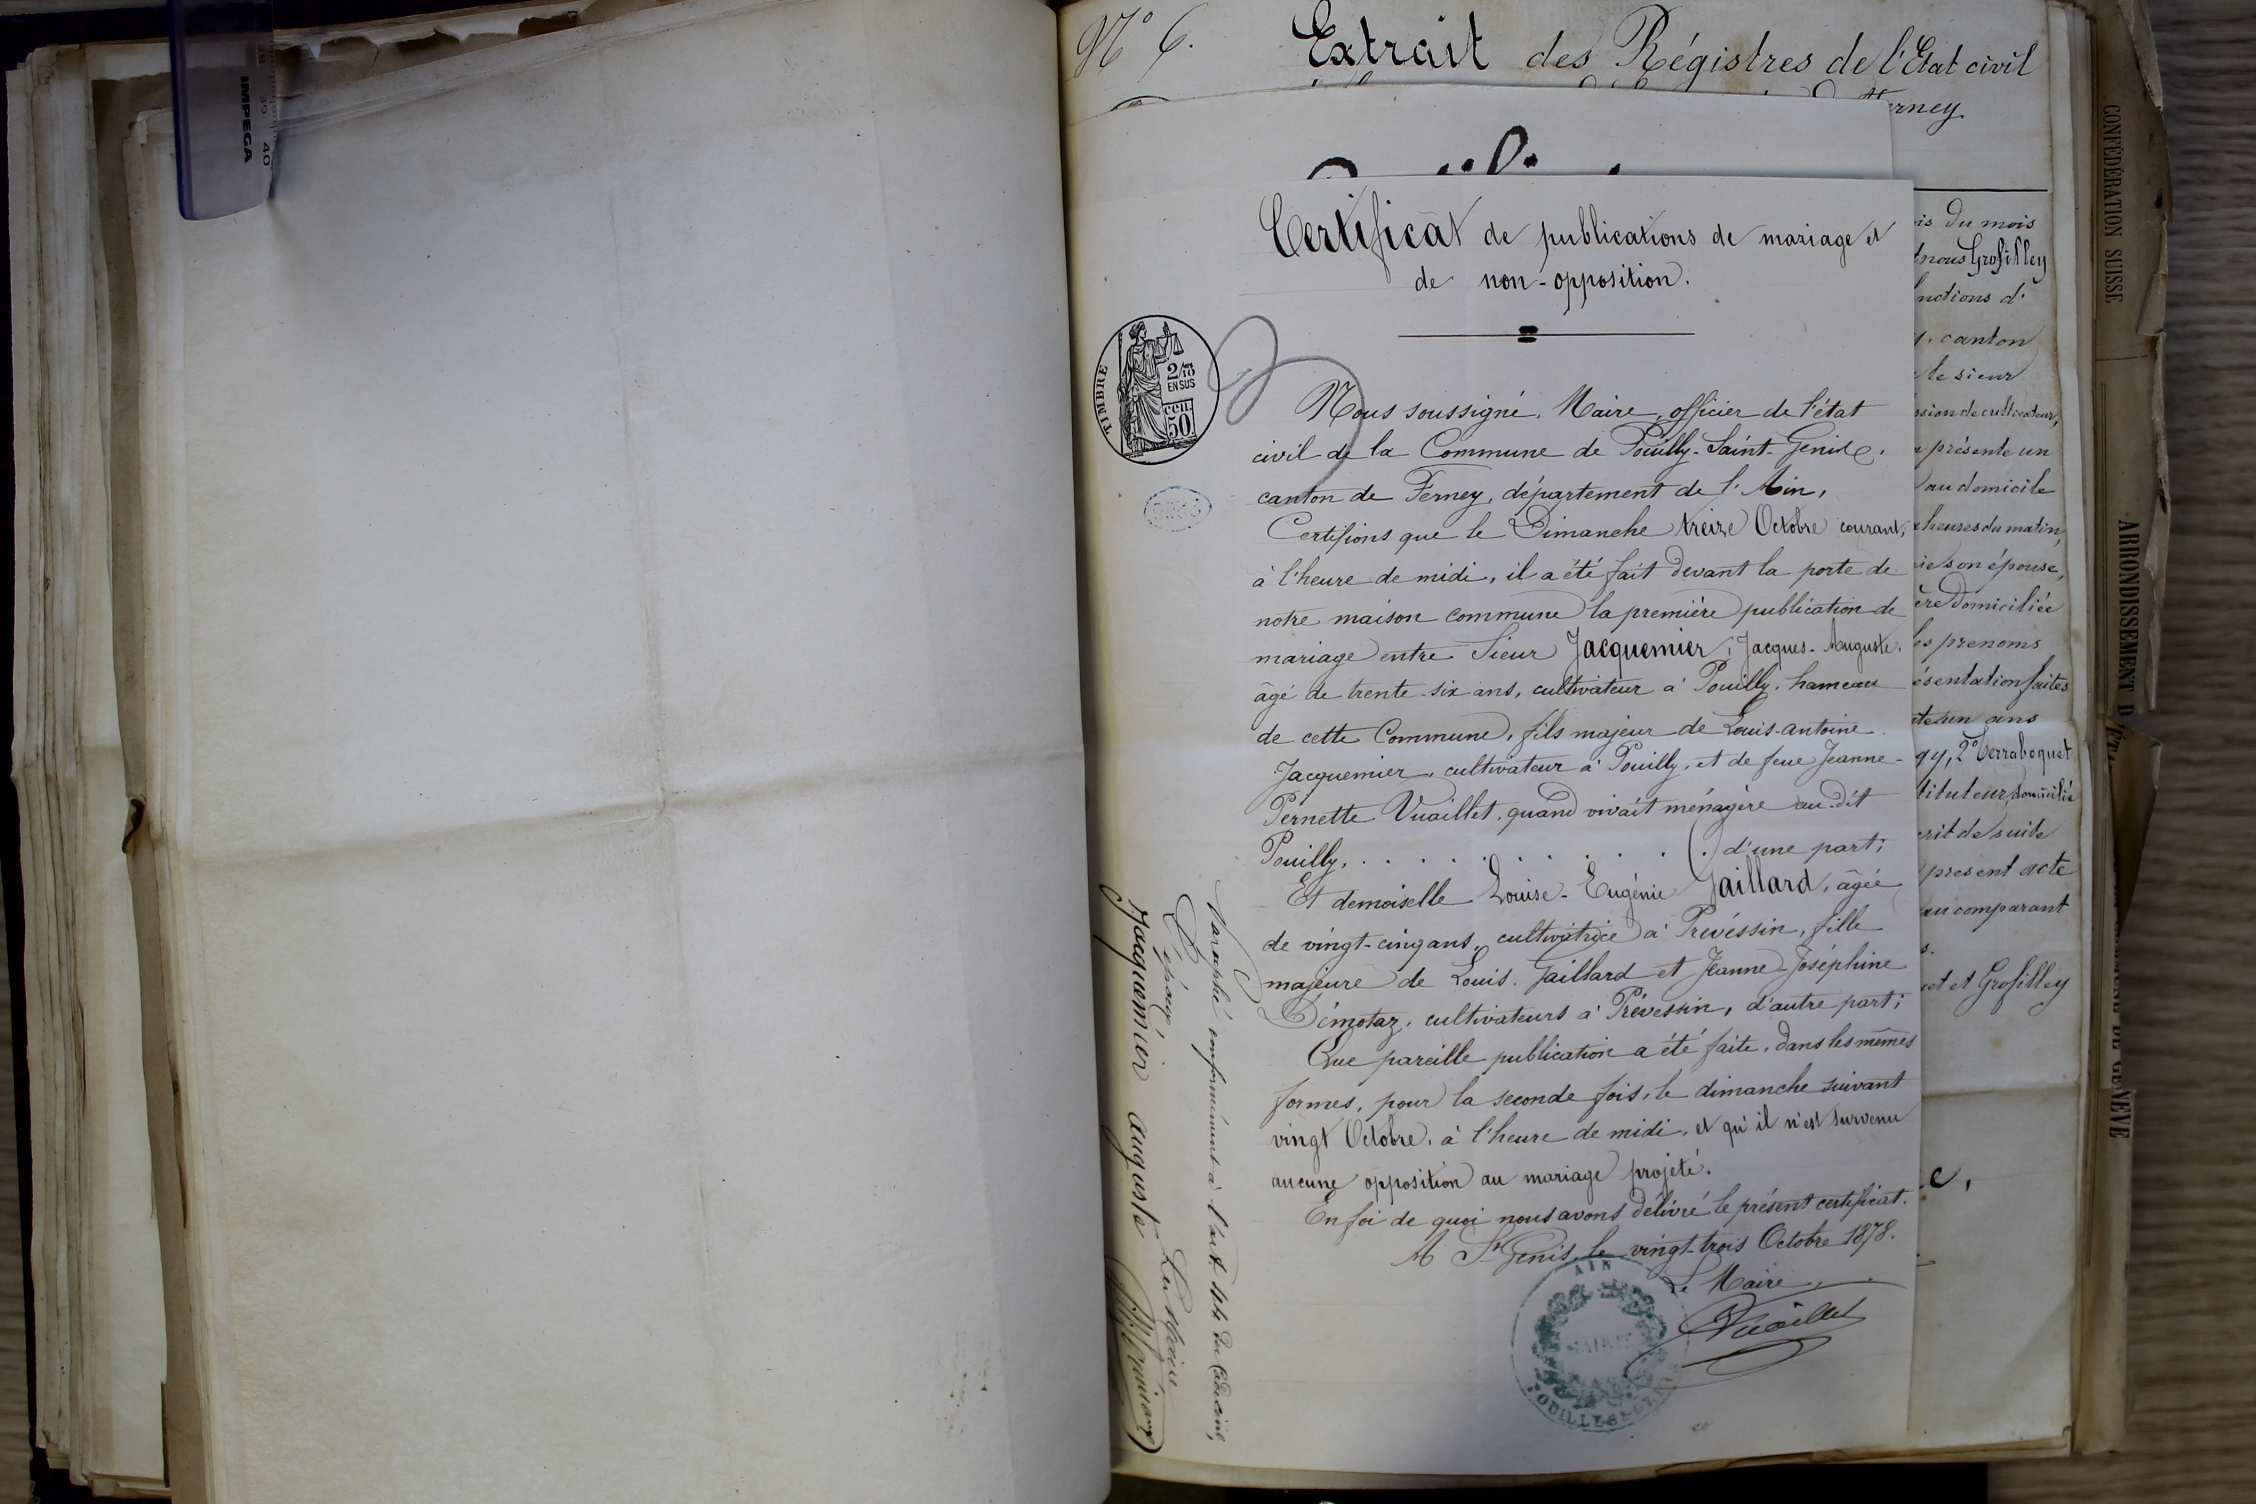 N° 6.
Extrait des Régistres de l'Etat civil
Ferney
Certificat de publications de mariage et
de non-opposition.
TIMBRE
2/10
EN SUS
cen.
50
Nous soussigné, Maire, officier de l'état
civil de la Commune de Pouilly-Saint-Genis,
canton de Ferney, département de l'Ain,
Certifions que le Dimanche treize Octobre courant,
à l'heure de midi, il a été fait devant la porte de
notre maison commune la première publication de
mariage entre Sieur Jacquemier, Jacques-Auguste,
âgé de trente-six ans, cultivateur à Pouilly, hameau
de cette Commune, fils majeur de Louis-Antoine
Jacquemier, cultivateur à Pouilly, et de feue Jeanne-
Pernette Vuaillet, quand vivait ménagère au dit
Pouilly, . . . . . . . . . . . d'une part;
Et demoiselle Louise-Eugénie Gaillard, âgée
de vingt-cinq ans, cultivatrice à Prévéssin, fille
majeure de Louis Gaillard et Jeanne-Joséphine
Démotaz, cultivateurs à Prévessin, d'autre part;
Que pareille publication a été faite, dans les mêmes
formes, pour la seconde fois, le dimanche suivant
vingt Octobre, à l'heure de midi, et qu'il n'est survenu
aucune opposition au mariage projeté.
En foi de quoi nous avons délivré le présent certificat.
A St Genis, le vingt-trois Octobre 1878.
Le Maire
Vuaillet
AIN
MAIRIE
Paraphé conformément à l'art. du Code civil,
L'époux Le Maire
Jacquemier auguste
is du mois
nous Grosfilley
nctions d'
canton
le sieur
ssion de cultivateur,
présente un
au domicile
heures du matin,
ie son épouse,
ère domiciliée
les prenoms
ésentation faites
te un ans
gy, 2° Terraboquet
tituteur domicilié
crit de suite
present acte
au comparant
s.
uet et Grosfilley
CONFÉDÉRATION SUISSE
ARRONDISSEMENT D
DE GENÈVE
IMPEGA
39
40